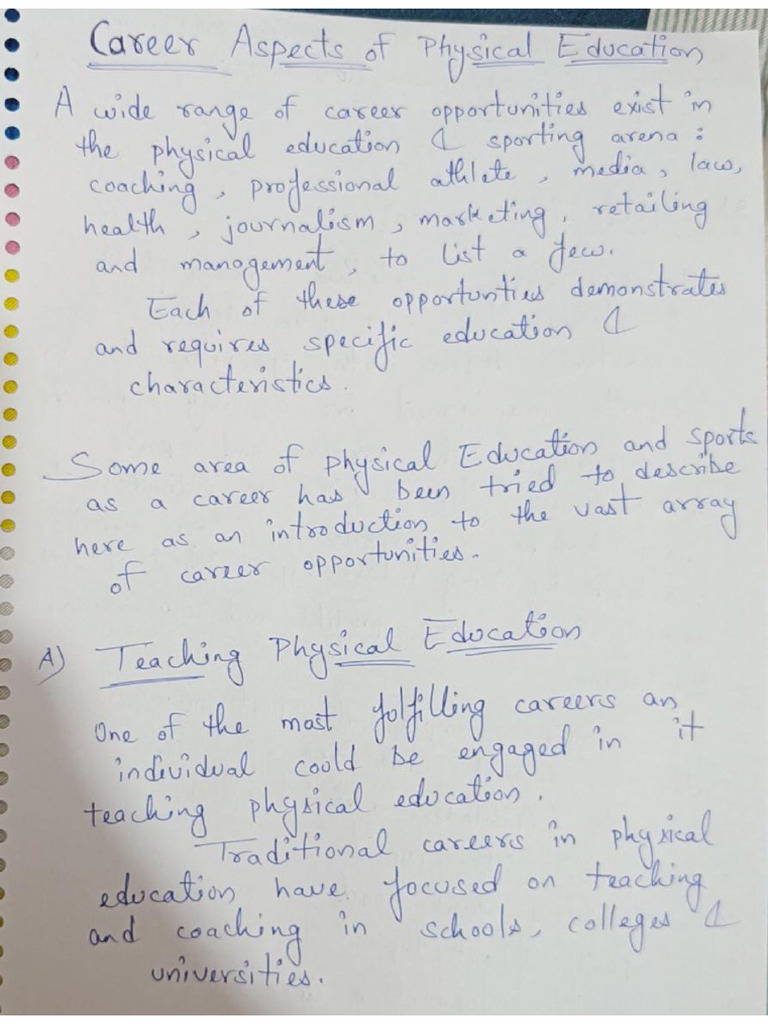 Career Aspects of Physical Education
A wide range of career opportunities exist in
the physical education & sporting arena :
coaching, professional athlete, media, law,
health, journalism, marketing, retailing
and management, to list a few.
Each of these opportunties demonstrates
and requires specific education &
characteristics.
Some area of Physical Education and sports
as a career has been tried to describe
here as an introduction to the vast array
of career opportunities.
A) Teaching Physical Education
One of the most folfilling careers an
individual could be engaged in it
teaching physical education.
Traditional careers in physical
education have focused on teaching
and coaching in schools, colleges &
universities.